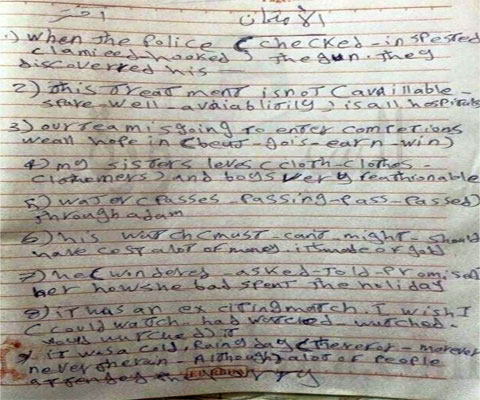 الأمتحان
1) when the police (checked - inspested
clamieed - hooked) the gun. they
discoverred his —
2) this treat ment is not (availlable -
spare - well - avaiablitily) is all hospitals
3) our team is going to enter comtetions
we all hope in (beat - gois - earn - win)
4) my sisters leves (cloth - clothes -
clothemers) and boys very feathionable
5) water (passes - passing - pass - passed)
through adam
6) his watch (must - cant - might - should
have cost a lot of money it made of gold
7) he (wondered - asked - told - promised
her how she bad spent the holiday
8) it has an ex citing match. I wish I
(could watch - had watched - watched -
it
9) it was a cold, Raing day (therefor - morever
never therein - Although) a lot of people
attended the